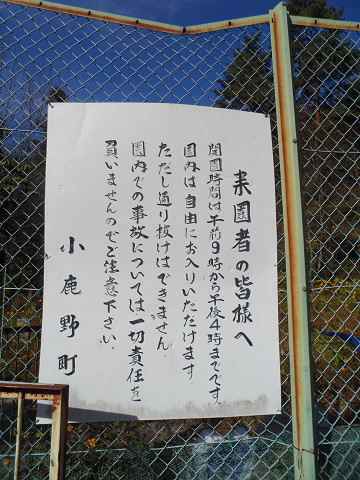 来園者の皆様へ
開園時間は午前9時から午後4時までです。
園内は自由にお入りいただけます
ただし通り抜けはできません。
園内での事故については一切責任を
負いませんのでご注意下さい。
小鹿野町